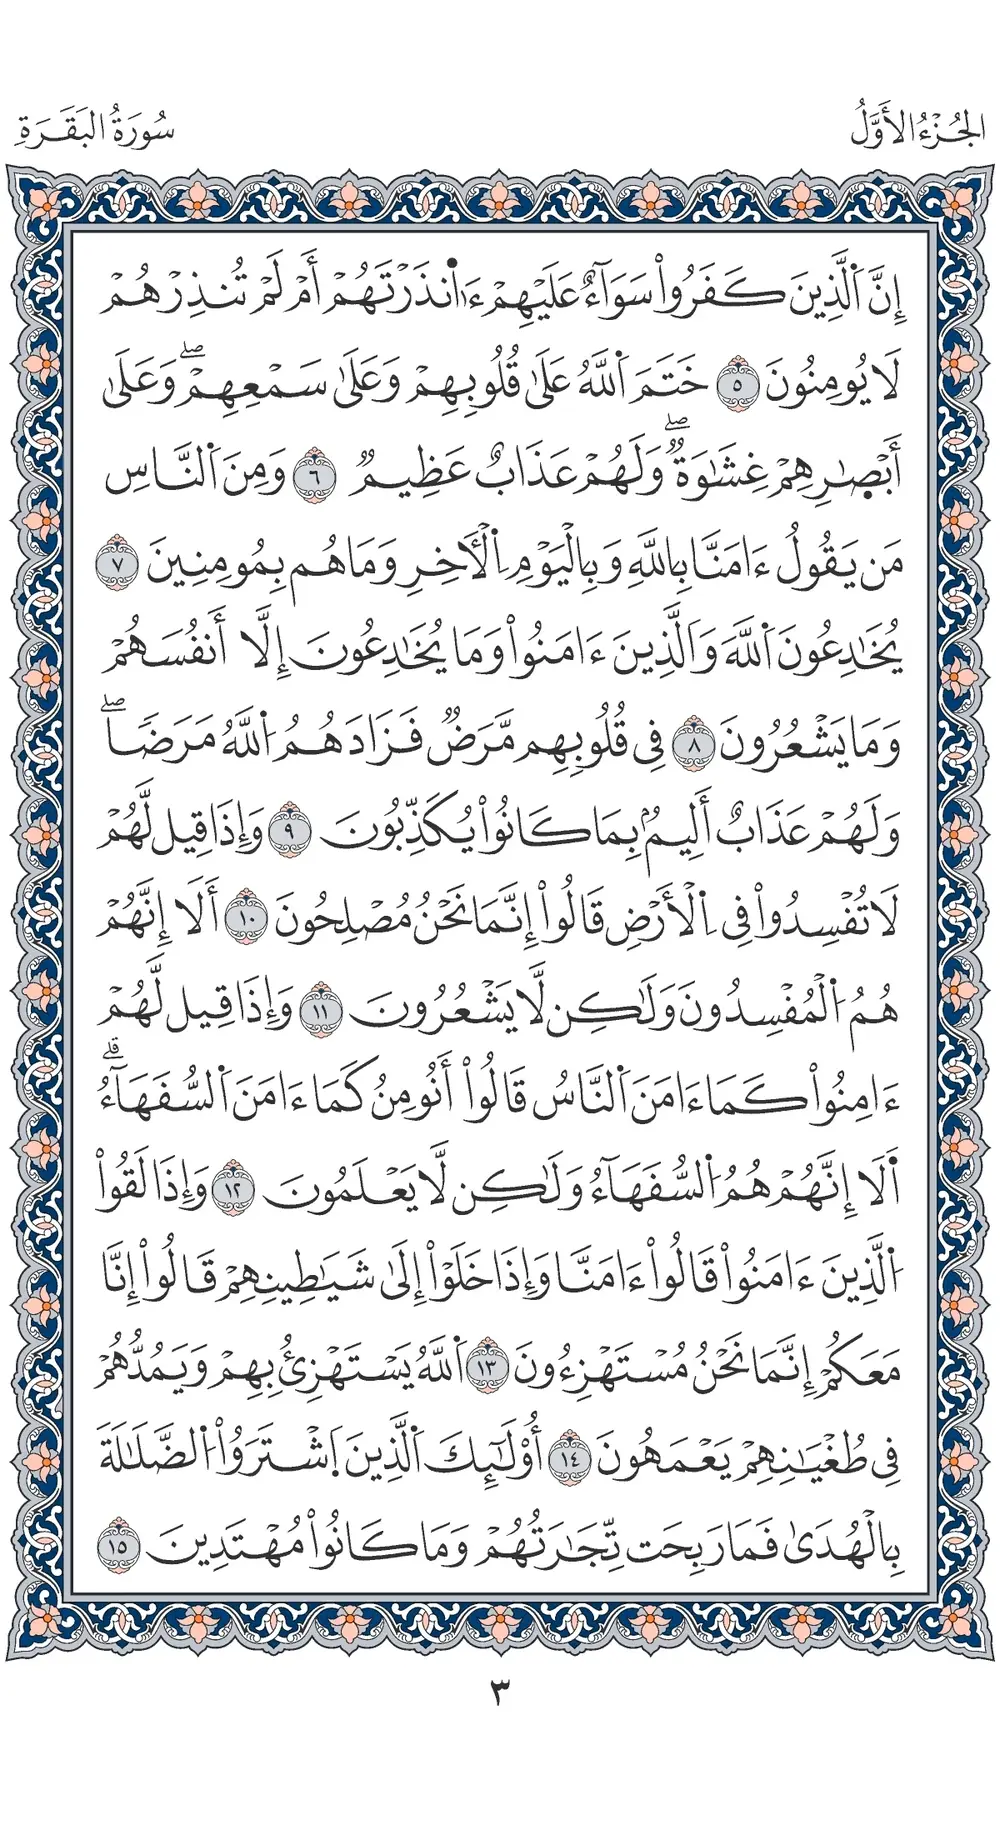 الجُزْءُ الأَوَّلُ
سُورَةُ البَقَرَةِ
إِنَّ اَ۬لذِينَ كَفَرُواْ سَوَآءٌ عَلَيْهِمْ ءَآنذَرْتَهُمْ أَمْ لَمْ تُنذِرْهُمْ
لَا يُومِنُونَ ٥ خَتَمَ اَ۬للَّهُ عَلَىٰ قُلُوبِهِمْ وَعَلَىٰ سَمْعِهِمْۖ وَعَلَىٰ
أَبْصٰ۪رِهِمْ غِشَٰوَةٞۖ وَلَهُمْ عَذَابٌ عَظِيمٞ ٦ وَمِنَ اَ۬لنَّاسِ
مَن يَقُولُ ءَامَنَّا بِاللَّهِ وَبِالْيَوْمِ اِ۬لْأٓخِرِ وَمَا هُم بِمُومِنِينَ ٧
يُخَٰدِعُونَ اَ۬للَّهَ وَالذِينَ ءَامَنُواْ وَمَا يُخَٰدِعُونَ إِلَّا أَنفُسَهُمْ
وَمَا يَشْعُرُونَ ٨ فِي قُلُوبِهِم مَّرَضٞ فَزَادَهُمُ اُ۬للَّهُ مَرَضاٗۖ
وَلَهُمْ عَذَابٌ أَلِيمُۢ بِمَا كَانُواْ يُكَذِّبُونَ ٩ وَإِذَا قِيل لَّهُمْ
لَا تُفْسِدُواْ فِي اِ۬لْأَرْضِ قَالُواْ إِنَّمَا نَحْنُ مُصْلِحُونَ ١٠ أَلَا إِنَّهُمْ
هُمُ اُ۬لْمُفْسِدُونَ وَلَٰكِن لَّا يَشْعُرُونَ ١١ وَإِذَا قِيل لَّهُمْ
ءَامِنُواْ كَمَا ءَامَنَ اَ۬لنَّاسُ قَالُواْ أَنُومِنُ كَمَا ءَامَنَ اَ۬لسُّفَهَآءُۗ
أَلَا إِنَّهُمْ هُمُ اُ۬لسُّفَهَآءُ وَلَٰكِن لَّا يَعْلَمُونَ ١٢ وَإِذَا لَقُواْ
اُ۬لذِينَ ءَامَنُواْ قَالُواْ ءَامَنَّا وَإِذَا خَلَوْاْ إِلَىٰ شَيَٰطِينِهِمْ قَالُواْ إِنَّا
مَعَكُمْ إِنَّمَا نَحْنُ مُسْتَهْزِءُونَ ١٣ اَ۬للَّهُ يَسْتَهْزِئُ بِهِمْ وَيَمُدُّهُمْ
فِي طُغْيَٰنِهِمْ يَعْمَهُونَ ١٤ أُوْلَٰٓئِكَ اَ۬لذِينَ اَ۪شْتَرَوُاْ اُ۬لضَّلَٰلَةَ
بِالْهُدَىٰ فَمَا رَبِحَت تِّجَٰرَتُهُمْ وَمَا كَانُواْ مُهْتَدِينَ ١٥
٣